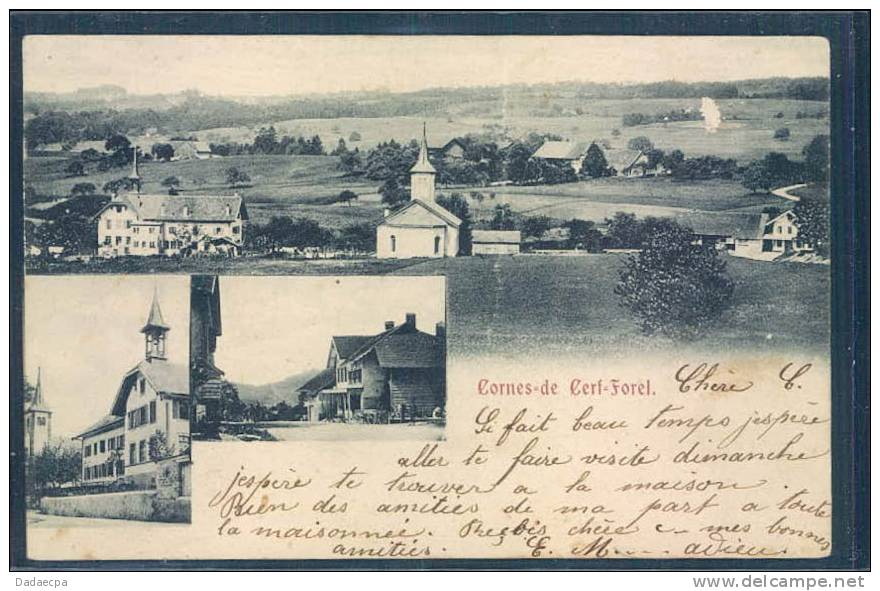 Cornes-de Cerf-Forel. Chère C.
Si fait beau temps j'espère
aller te faire visite dimanche
jespère te trouver a la maison.
Bien des amitiés de ma part a toute
la maisonnée. chère c - mes bonnes
amitiés. E. M.... adieu.
Dadaecpa
www.delcampe.net